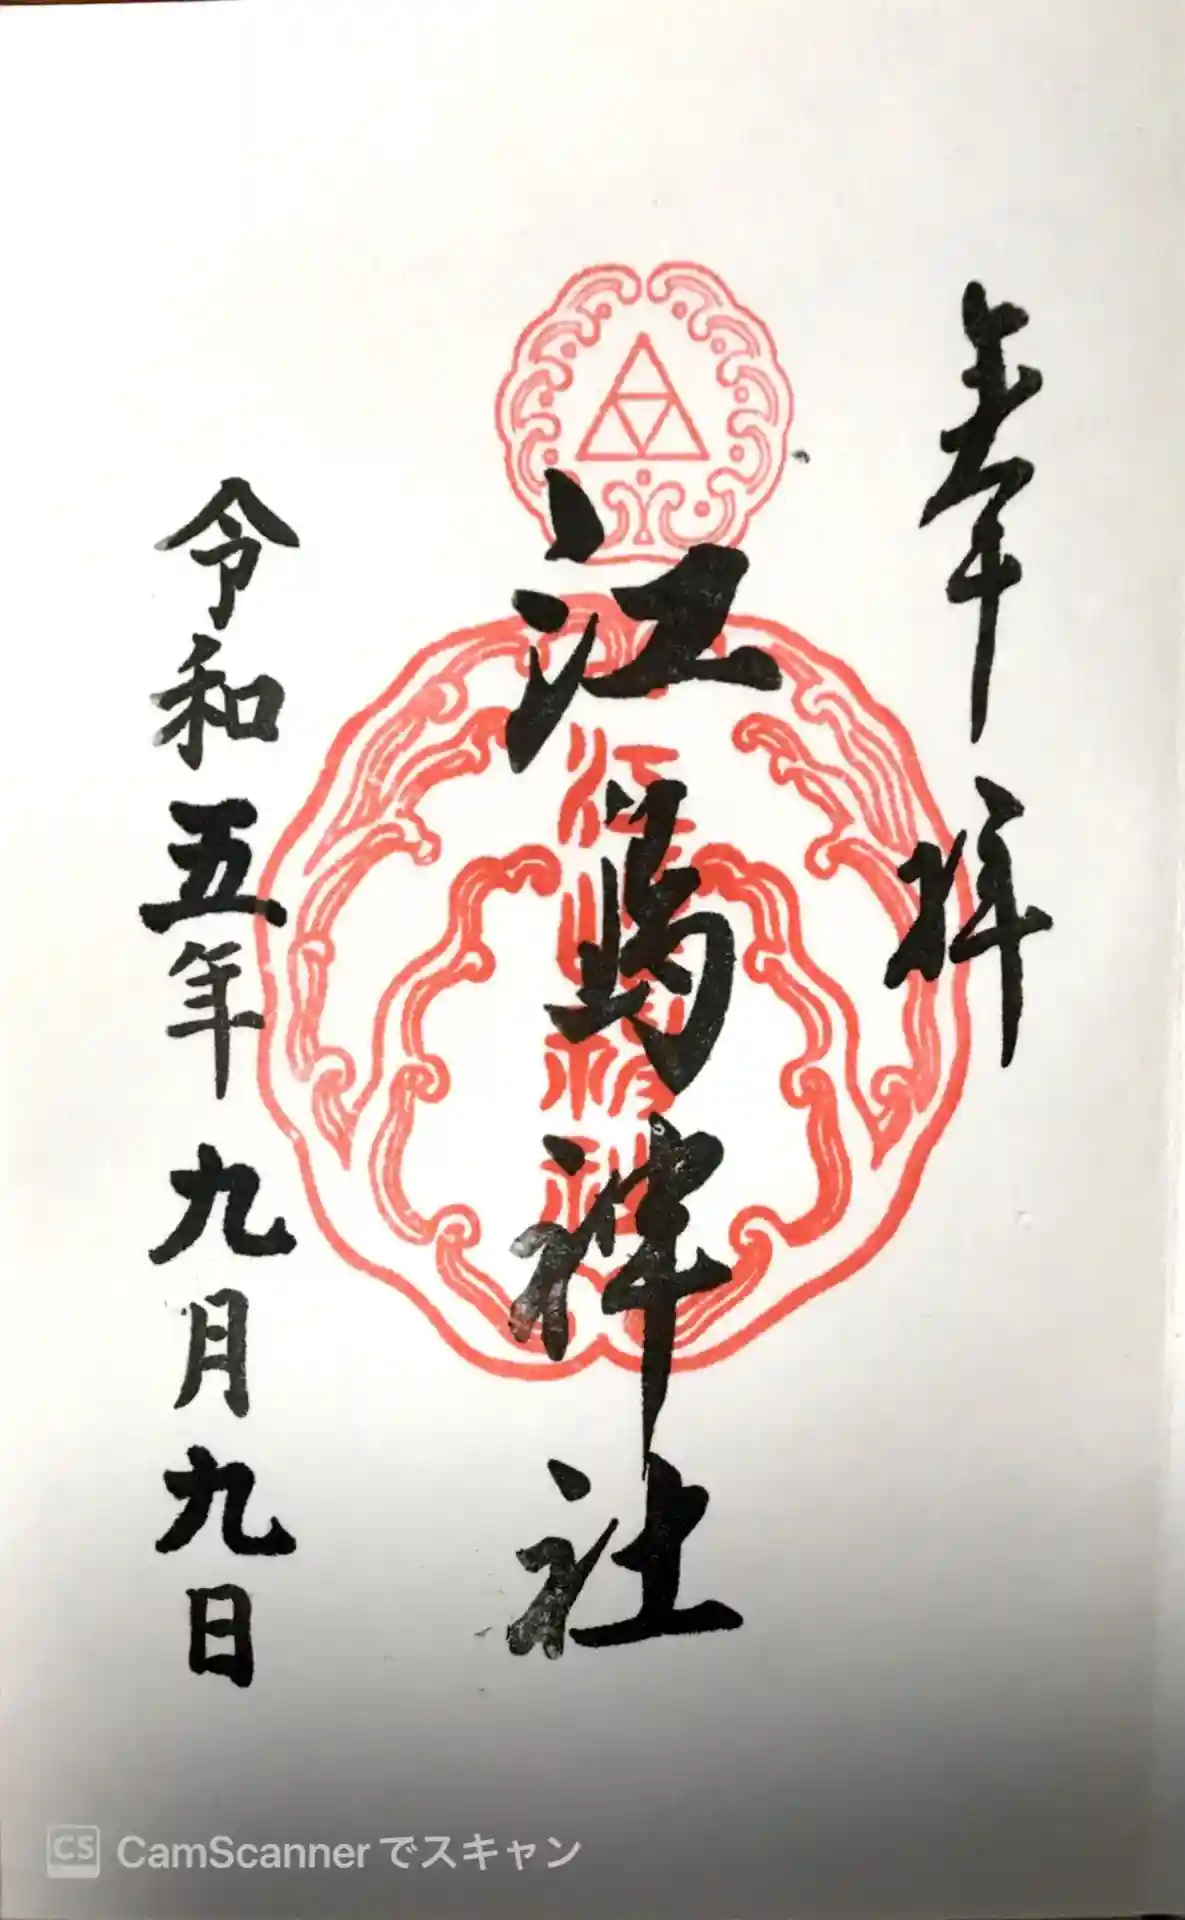 奉拝
江島神社
令和五年九月九日
CS CamScannerでスキャン